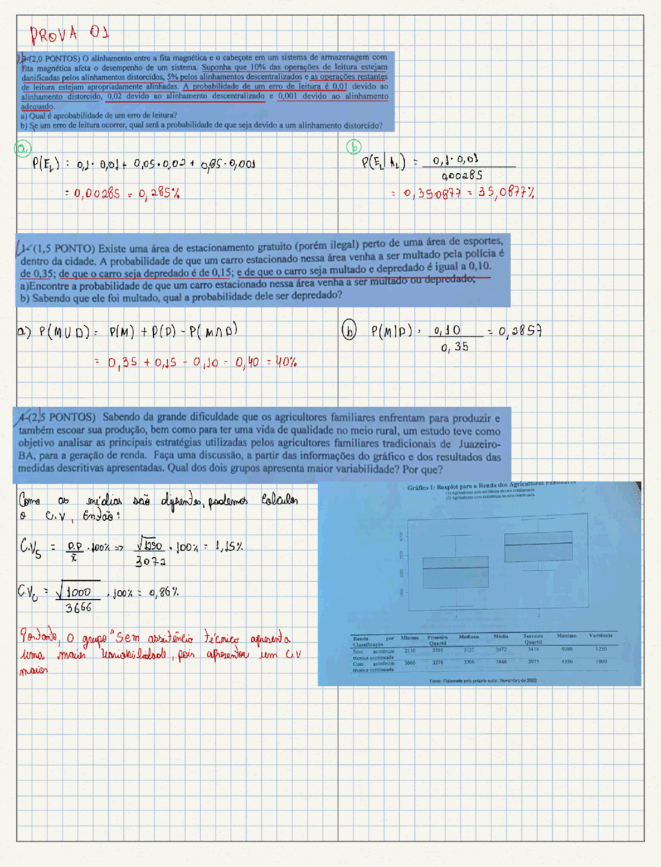 PROVA 01
3-(2,0 PONTOS) O alinhamento entre a fita magnética e o cabeçote em um sistema de armazenagem com
fita magnética afeta o desempenho de um sistema. Suponha que 10% das operações de leitura estejam
danificadas pelos alinhamentos distorcidos, 5% pelos alinhamentos descentralizados e as operações restantes
de leitura estejam apropriadamente alinhadas. A probabilidade de um erro de leitura é 0,01 devido ao
alinhamento distorcido, 0,02 devido ao alinhamento descentralizado e 0,001 devido ao alinhamento
adequado.
a) Qual é aprobabilidade de um erro de leitura?
b) Se um erro de leitura ocorrer, qual será a probabilidade de que seja devido a um alinhamento distorcido?
a)
P(EL) = 0,1 · 0,01 + 0,05 · 0,02 + 0,85 · 0,001
= 0,00285 = 0,285%
b)
P(EL|AL) = 0,1 · 0,01
0,00285
= 0,350877 = 35,0877%
1-(1,5 PONTO) Existe uma área de estacionamento gratuito (porém ilegal) perto de uma área de esportes,
dentro da cidade. A probabilidade de que um carro estacionado nessa área venha a ser multado pela polícia é
de 0,35; de que o carro seja depredado é de 0,15; e de que o carro seja multado e depredado é igual a 0,10.
a)Encontre a probabilidade de que um carro estacionado nessa área venha a ser multado ou depredado;
b) Sabendo que ele foi multado, qual a probabilidade dele ser depredado?
a) P(M∪D) = P(M) + P(D) - P(M∩D)
= 0,35 + 0,15 - 0,10 - 0,40 = 40%
b) P(M|D) = 0,10 = 0,2857
0,35
4-(2,5 PONTOS) Sabendo da grande dificuldade que os agricultores familiares enfrentam para produzir e
também escoar sua produção, bem como para ter uma vida de qualidade no meio rural, um estudo teve como
objetivo analisar as principais estratégias utilizadas pelos agricultores familiares tradicionais de Juazeiro-
BA, para a geração de renda. Faça uma discussão, a partir das informações do gráfico e dos resultados das
medidas descritivas apresentadas. Qual dos dois grupos apresenta maior variabilidade? Por que?
Como as médias são diferentes, podemos calcular
o C.V, então:
C.VS = D.P · 100% => √1250 · 100% = 1,15%
x̄ 3072
C.VC = √1000 · 100% = 0,86%
3666
Portanto, o grupo "Sem assistência técnica apresenta
uma maior variabilidade, pois apresentou um C.V
maior
Gráfico 1: Boxplot para a Renda dos Agricultores Familiares
Renda por Mínimo Primeiro Mediana Média Terceiro Máximo Variância
Classificação Quartil Quartil
Fonte: Elaborada pelo próprio autor, Novembro de 2022